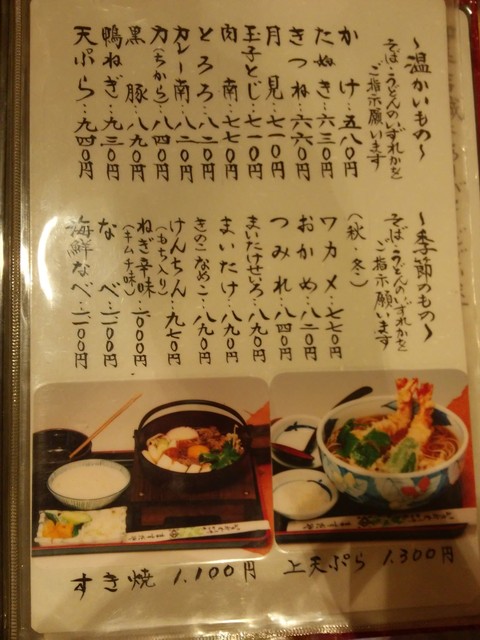 〜温かいもの〜
そば・うどんのいずれかを
ご指示願います
かけ‥五八〇円
たぬき‥六三〇円
きつね‥六六〇円
月見‥七一〇円
玉子とじ‥七一〇円
肉南‥七七〇円
とろろ‥八二〇円
カレー南‥八二〇円
力(ちから)‥八四〇円
黒豚‥八九〇円
鴨ねぎ‥九三〇円
天ぷら‥九四〇円
〜季節のもの〜
そば・うどんのいずれかを
ご指示願います
(秋・冬)
ワカメ‥七七〇円
おかめ‥八二〇円
つみれ‥八四〇円
まいたけせいろ‥八九〇円
まいたけ‥八九〇円
きのこなめこ‥八九〇円
けんちん‥九七〇円
(もち入り)
ねぎ辛味‥一〇〇〇円
(キムチ味)
なべ‥一一〇〇円
海鮮なべ‥一一〇〇円
すき焼 1.100円
上天ぷら 1.300円